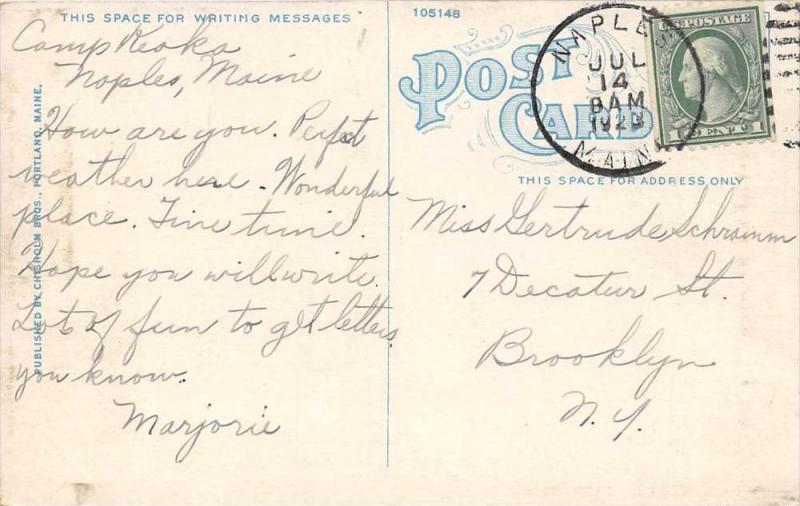 THIS SPACE FOR WRITING MESSAGES
Camp Keoka
Naples, Maine
How are you. Perfect
weather here. Wonderful
place. Fine time.
Hope you will write.
Lots of fun to get letters
you know.
Marjorie
PUBLISHED BY CHISHOLM BROS., PORTLAND, MAINE.
105148
POST
CARD
NAPLES
JUL
14
8 AM
1923
MAINE
U.S. POSTAGE
1 CENT 1
THIS SPACE FOR ADDRESS ONLY
Miss Gertrude Schramm
7 Decatur St.
Brooklyn
N.Y.